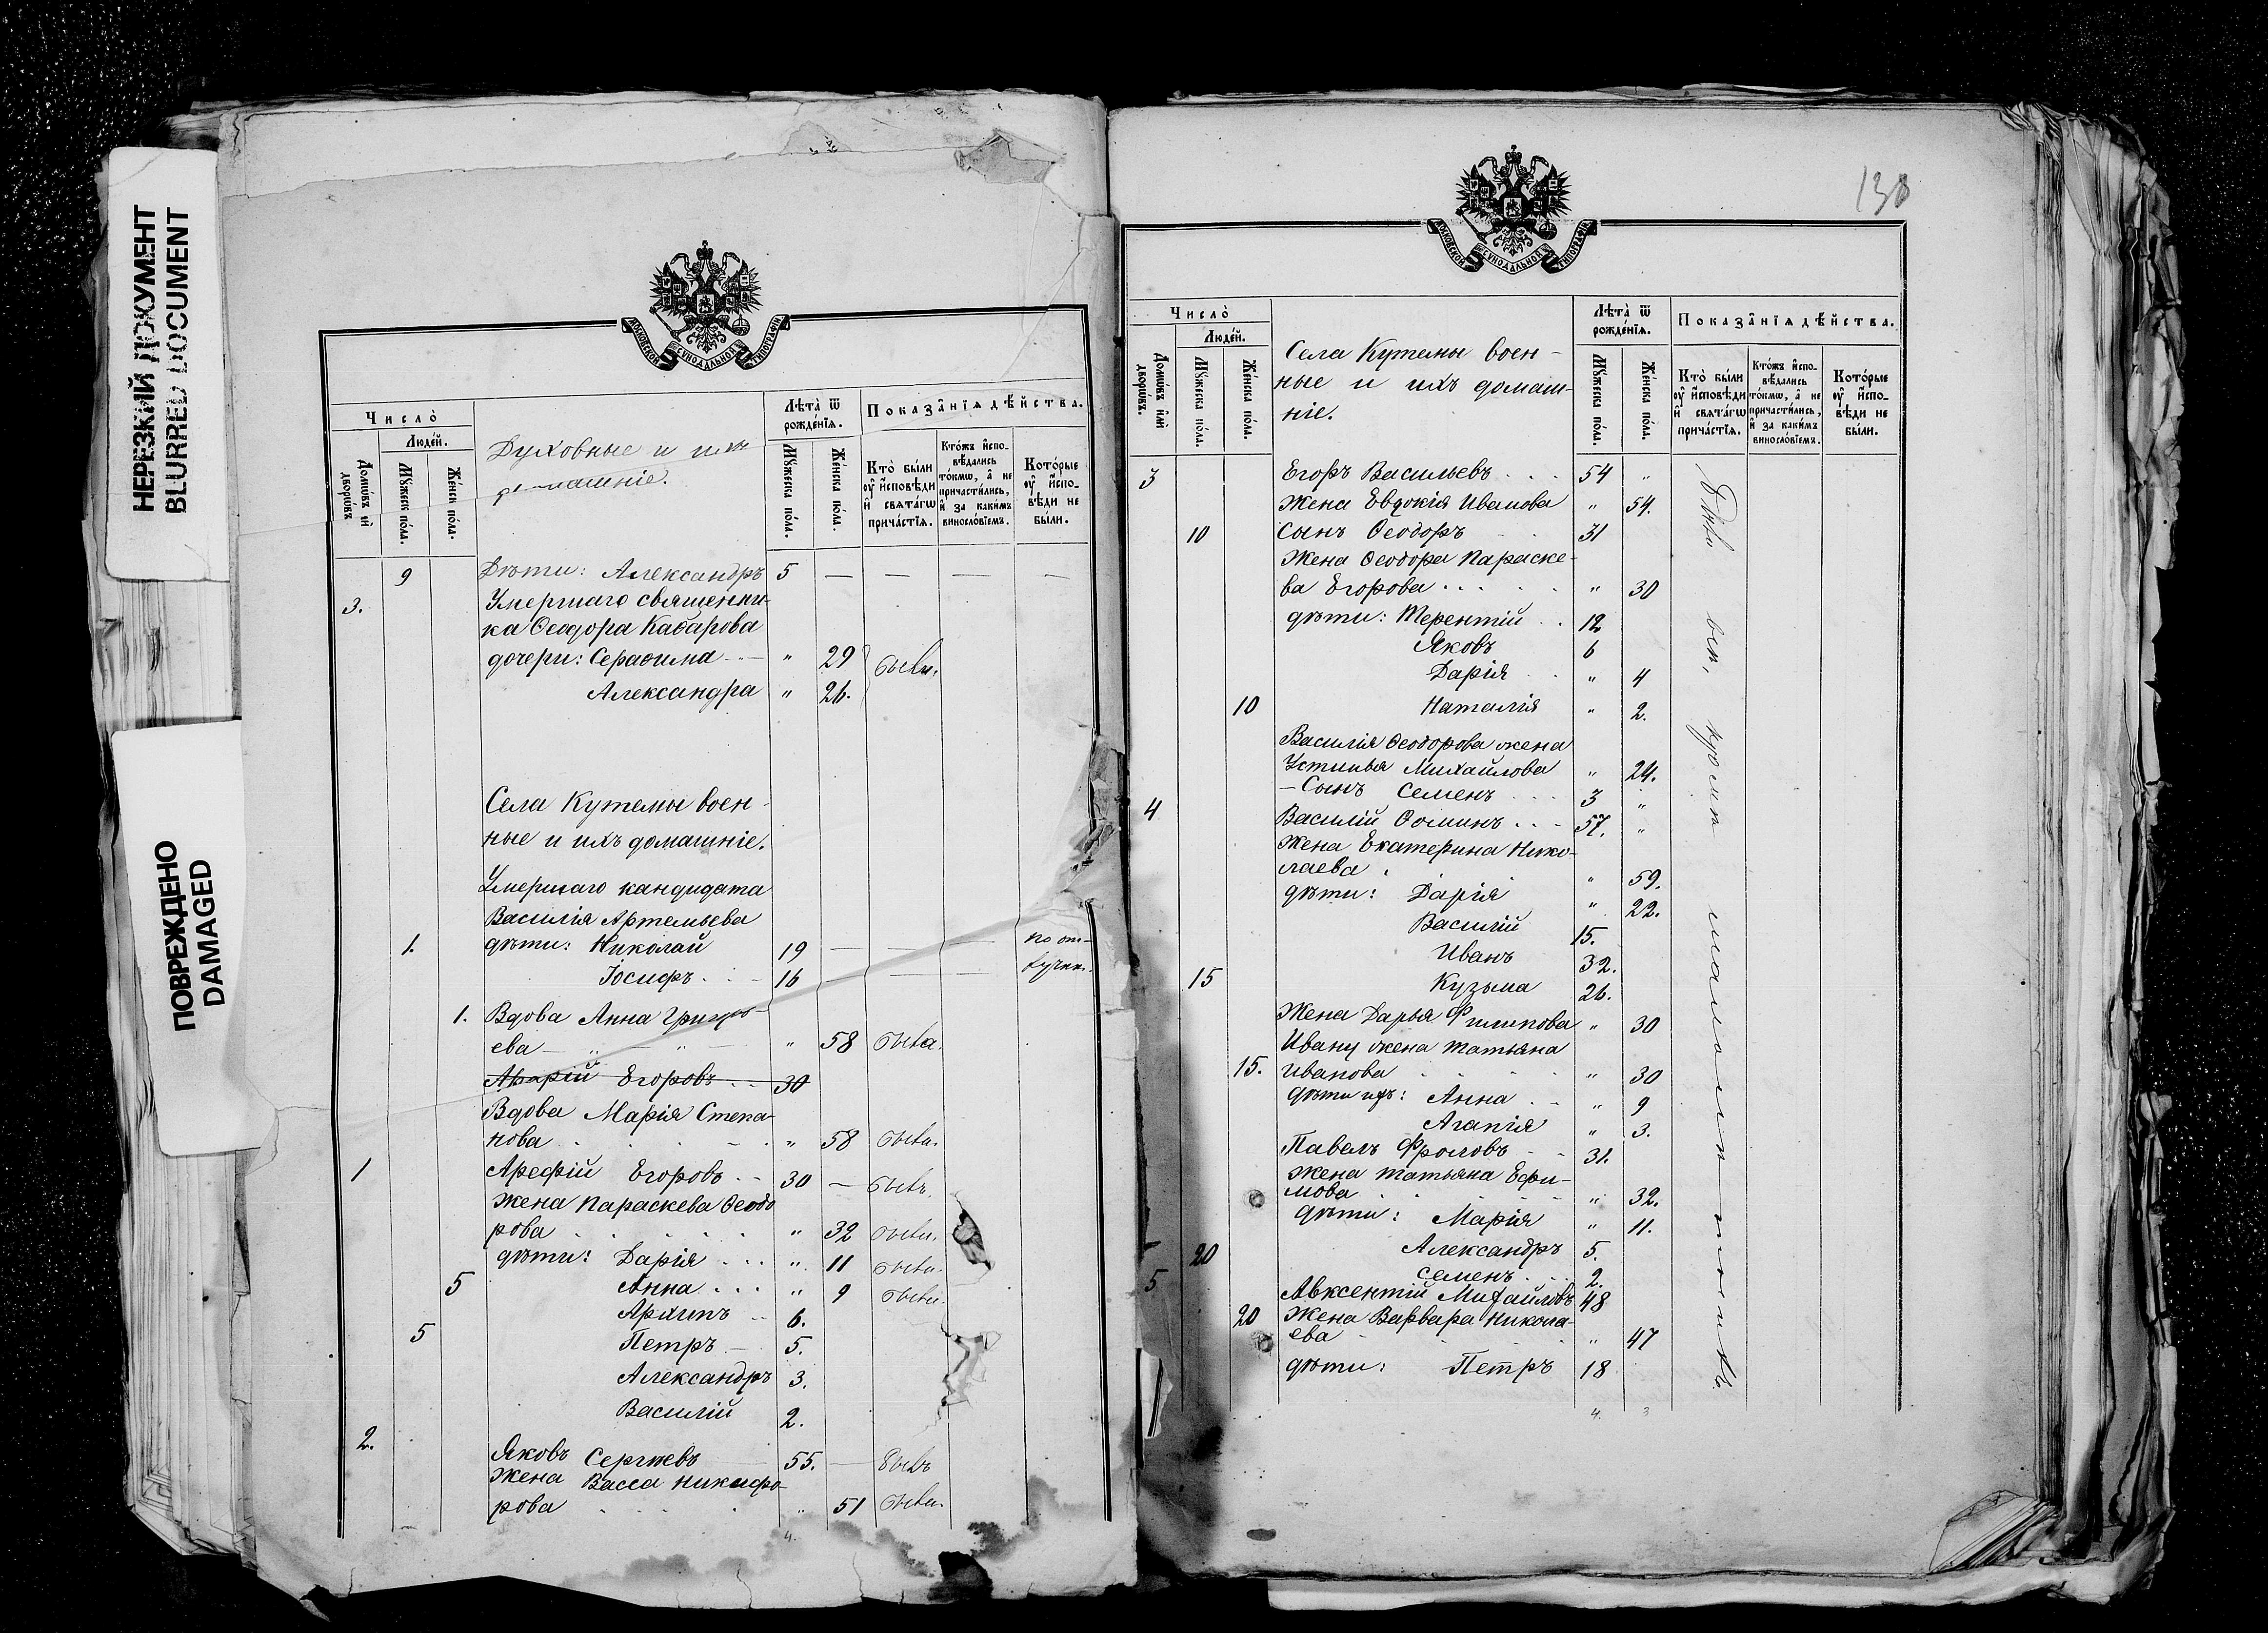 НЕРЕЗКИЙ ДОКУМЕНТ
BLURRED DOCUMENT
ПОВРЕЖДЕНО
DAMAGED
МОСКОВСКОЙ СѴНОДАЛЬНОЙ ТИПОГРАФІИ
Число̀
Люде́й.
Домѡ́въ и҆лѝ дворѡ́въ
Мꙋ́жеск по́ла.
Же́нск по́ла.
Духовные и ихъ
домашніе.
Лѣта̀ ѿ рожде́нїѧ.
Мꙋ́жеска по́ла.
Же́нска по́ла.
Показа̑нїѧ дѣ́йства.
Кто̀ бы́ли оу҆ и҆сповѣ́ди и҆ свѧта́гѡ причастїѧ.
Кто́жъ и҆спо-вѣ́дались то́кмѡ, а҆ не причасти́лись, и҆ за каки́мъ винослові́емъ.
Кото́рые оу҆ и҆спо-вѣ́ди не бы́ли.
9 Дѣти: Александръ 5 — — — —
3. Умершаго священни-
ка Ѳеодора Кабарова
дочери: Серафима " 29 были.
Александра " 26.
Села Кутемы воен-
ные и ихъ домашніе.
Умершаго кандидата
Василія Артемьева
1. дѣти: Николай 19 — — — по от-
Іосифъ 16 — — — лучкѣ.
1. Вдова Анна Григорь-
ева " 58 была.
Арефій Егоровъ 30
Вдова Марія Степа-
нова " 58 была.
1 Арефій Егоровъ 30 — былъ.
жена Параскева Ѳеодо
рова " 32 была.
дѣти: Дарія " 11 была.
5 Анна " 9 была.
Архипъ 6.
5 Петръ 5.
Александръ 3.
Василій 2.
2. Яковъ Сергѣевъ 55. — былъ
жена Васса Никифо-
рова " 51 была.
4.
130
МОСКОВСКОЙ СѴНОДАЛЬНОЙ ТИПОГРАФІИ
Число̀
Люде́й.
Домѡ́въ и҆лѝ дворѡ́въ.
Мꙋ́жеска по́ла.
Же́нска по́ла.
Села Кутемы воен-
ные и ихъ домаш-
ніе.
Лѣта̀ ѿ рожде́нїѧ.
Мꙋ́жеска по́ла.
Же́нска по́ла.
Показа̑нїѧ дѣ́йства.
Кто̀ бы́ли оу҆ и҆сповѣ́ди и҆ свѧта́гѡ причастїѧ.
Кто́жъ и҆спо-вѣ́дались то́кмѡ, а҆ не причасти́лись, и҆ за каки́мъ винослові́емъ.
Кото́рые оу҆ и҆спо-вѣ́ди не бы́ли.
3 Егоръ Васильевъ 54 "
Жена Евдокія Иванова " 54.
10 сынъ Ѳеодоръ 31
Жена Ѳеодора Параске-
ва Егорова " 30
дѣти: Терентій 12
Яковъ 6
Дарія " 4
10 Наталія " 2.
Василія Ѳеодорова жена
Устинья Михайлова " 24.
-Сынъ Семенъ 3 "
4 Василій Ѳоминъ 57. "
Жена Екатерина Нико-
лаева " 59.
дѣти: Дарія " 22.
Василій 15.
Иванъ 32.
15 Кузьма 26.
Жена Дарья Филипова " 30
Ивану жена Татьяна
15. Иванова " 30
дѣти ихъ: Анна " 9
Агапія " 3.
Павелъ Фроловъ 31.
жена Татьяна Ефи-
мова " 32.
дѣти: Марія " 11.
20 Александръ 5.
семенъ 2.
5 Авксентій Михайловъ 48
20 Жена Варвара Никола-
ева " 47
дѣти: Петръ 18
4. 3
были всѣ, кромѣ малолѣтковъ.